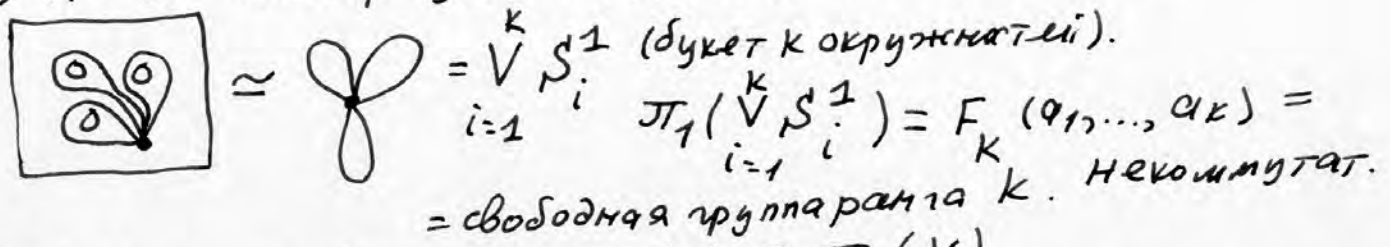 ≃ = ⋁ᵏᵢ₌₁ S¹ᵢ (букет k окружностей).
π₁(⋁ᵏᵢ₌₁ S¹ᵢ) = F_K (a₁,..., a_K) =
= свободная группа ранга k. некоммутат.